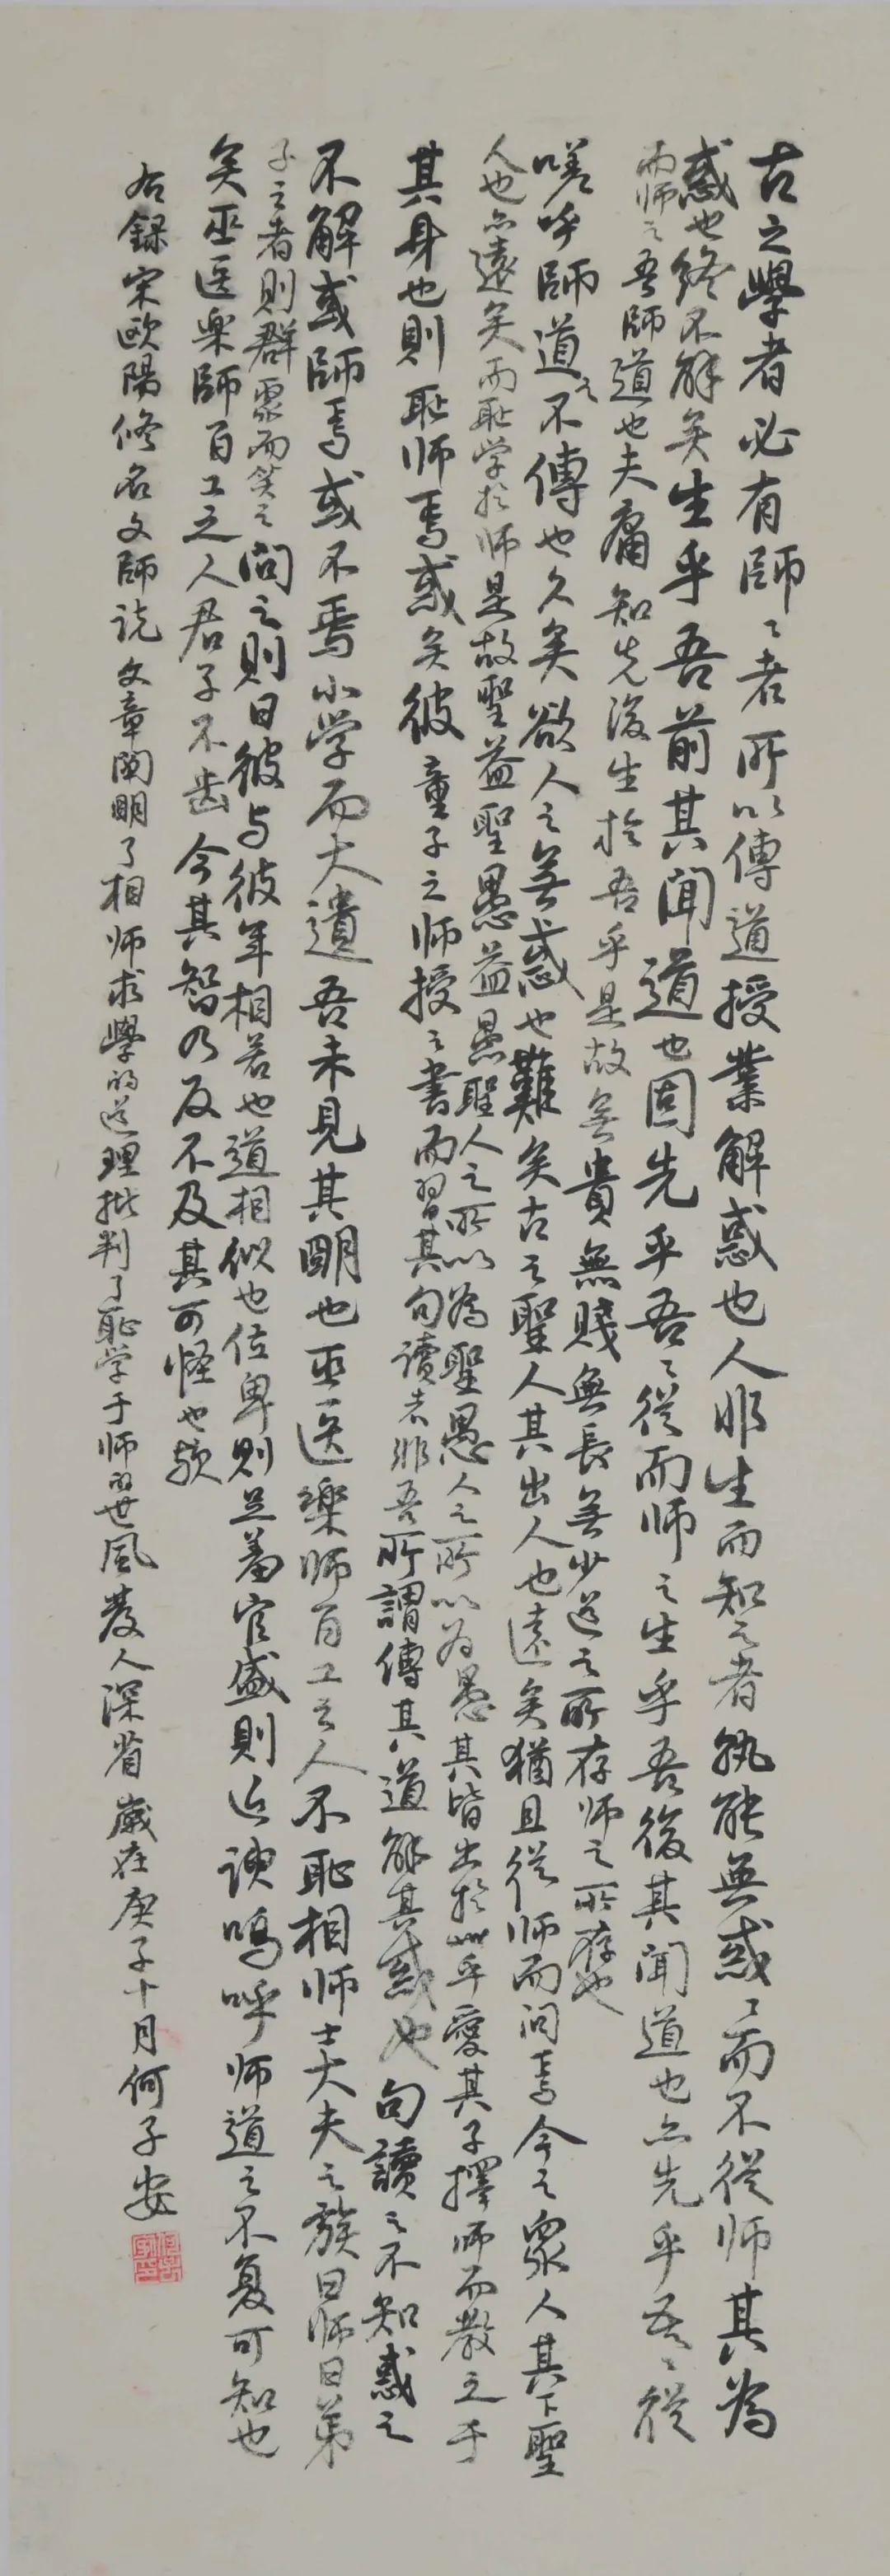 古之學者必有師〻者所以傳道授業解惑也人非生而知之者孰能無惑〻而不從师其為
惑也終不解矣生乎吾前其聞道也固先乎吾〻從而师之生乎吾後其聞道也亦先乎吾〻從
而师之吾師道也夫庸知先後生於吾乎是故無貴無賤無長無少道之所存师之所存也
嗟呼師道之不傳也久矣欲人之無惑也難矣古之聖人其出人也遠矣猶且從师而问焉今之眾人其下聖
人也亦遠矣而耻学於师是故聖益聖愚益愚聖人之所以為聖愚人之所以为愚其皆出於此乎愛其子擇师而教之于
其身也則耻师焉惑矣彼童子之师授之書而習其句讀者非吾所謂傳其道解其惑也句讀之不知惑之
不解或師焉或不焉小学而大遺吾未見其明也巫医樂师百工之人不耻相师士大夫之族曰师曰弟
子云者則群聚而笑之问之則曰彼与彼年相若也道相似也位卑則足羞官盛則近谀嗚呼师道之不复可知也
矣巫医樂師百工之人君子不齿今其智乃反不及其可怪也欤
右録宋歐陽修名文師说文章闡明了相师求學的道理批判了耻学于师的世风發人深省歲在庚子十月何子安